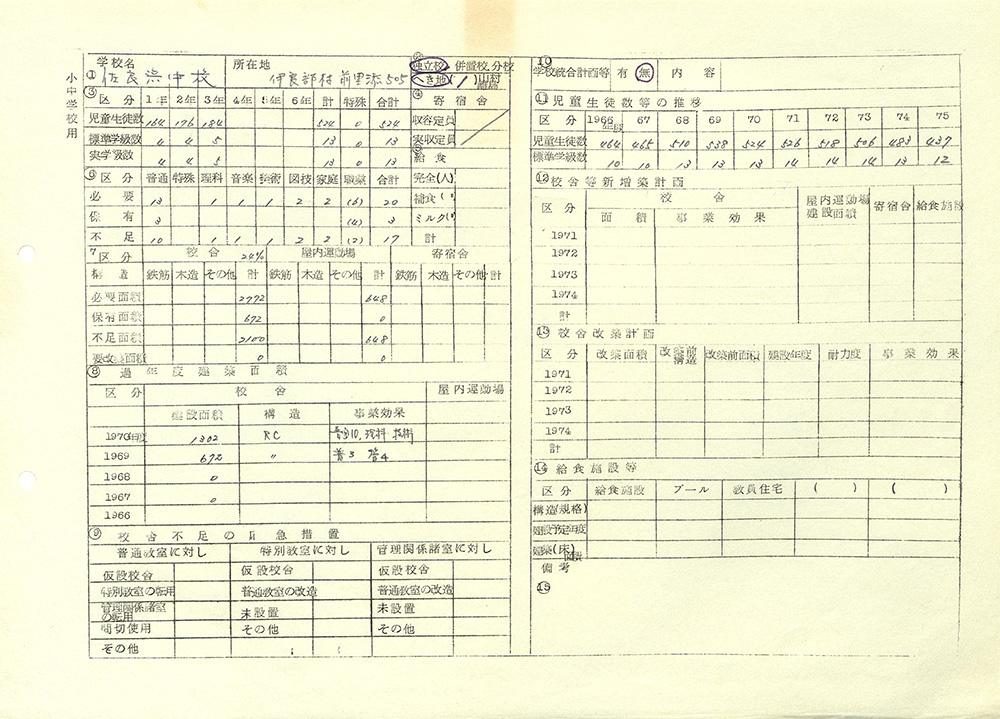 小中学校用
① 学校名 佐良浜中校 所在地 伊良部村前里添505 独立校 併置校,分校
へき地(1) 山村 離島
③ 区分 1年 2年 3年 4年 5年 6年 計 特殊 合計
児童生徒数 164 176 184 524 0 524
標準学級数 4 4 5 13 0 13
実学級数 4 4 5 13 0 13
④ 寄宿舎
収容定員
実収定員
給食
完全(人)
補食(〃)
ミルク(〃)
計
⑥ 区分 普通 特殊 理科 音楽 技術 図技 家庭 職業 合計
必要 13 1 1 1 2 2 (6) 20
保有 3 (4) 3
不足 10 1 1 1 2 2 (2) 17
7 区分 校舎 24% 屋内運動場 寄宿舎
構造 鉄筋 木造 その他 計 鉄筋 木造 その他 計 鉄筋 木造 その他 計
必要面積 2772 648
保有面積 672 0
不足面積 2100 648
要改築面積 0 0
⑧ 過年度建築面積
区分 校舎 屋内運動場
建設面積 構造 事業効果
1970年度 1302 RC 普10, 理科 技術
1969 672 〃 普3 管4
1968 0
1967 0
1966
⑨ 校舎不足の応急措置
普通教室に対し 特別教室に対し 管理関係諸室に対し
仮設校舎 仮設校舎 仮設校舎
特別教室の転用 普通教室の改造 普通教室の改造
管理関係諸室の転用 未設置 未設置
間切使用 その他 その他
その他
10 学校統合計画等 有 無 内容
⑪ 児童生徒数等の推移
区分 1966年度 67 68 69 70 71 72 73 74 75
児童生徒数 464 465 510 538 524 526 518 506 483 437
標準学級数 10 10 13 13 13 14 14 14 13 12
⑫ 校舎等新増築計画
区分 校舎 屋内運動場建設面積 寄宿舎 給食施設
面積 事業効果
1971
1972
1973
1974
計
⑬ 校舎改築計画
区分 改築面積 改築前構造 改築前面積 建設年度 耐力度 事業効果
1971
1972
1973
1974
計
⑭ 給食施設等
区分 給食施設 プール 教員住宅 ( ) ( )
構造(規格)
建設予定年度
建築(床)面積
備考
⑮